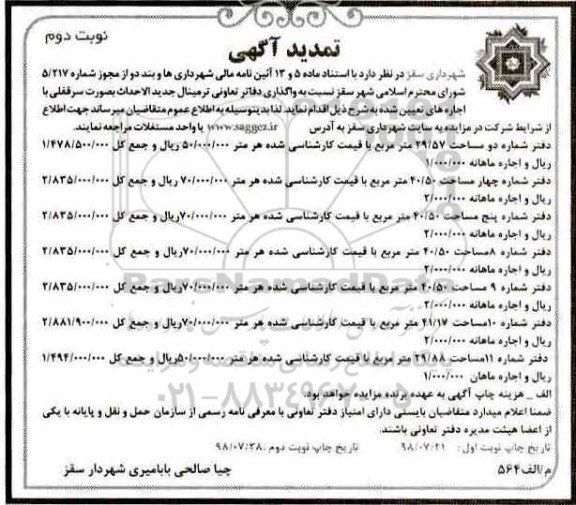 نوبت دوم
تمدید آگهی
شهرداری سقز در نظر دارد با استناد ماده ۵ و ۱۳ آئین نامه مالی شهرداری ها و بند دو از مجوز شماره ۵/۲۱۷
شورای محترم اسلامی شهر سقز نسبت به واگذاری دفاتر تعاونی ترمینال جدید الاحداث بصورت سرقفلی با
اجاره های تعیین شده به شرح ذیل اقدام نماید. لذا بدینوسیله به اطلاع عموم متقاضیان میرساند جهت اطلاع
از شرایط شرکت در مزایده به سایت شهرداری سقز به آدرس www.saggez.ir یا واحد مستغلات مراجعه نمایند.
دفتر شماره دو مساحت ۲۹/۵۷ متر مربع با قیمت کارشناسی شده هر متر ۵۰/۰۰۰/۰۰۰ ریال و جمع کل ۱/۴۷۸/۵۰۰/۰۰۰
ریال و اجاره ماهانه ۱/۰۰۰/۰۰۰
دفتر شماره چهار مساحت ۴۰/۵۰ متر مربع با قیمت کارشناسی شده هر متر ۷۰/۰۰۰/۰۰۰ ریال و جمع کل ۲/۸۳۵/۰۰۰/۰۰۰
ریال و اجاره ماهانه ۲/۰۰۰/۰۰۰
دفتر شماره پنج مساحت ۴۰/۵۰ متر مربع با قیمت کارشناسی شده هر متر ۷۰/۰۰۰/۰۰۰ریال و جمع کل ۲/۸۳۵/۰۰۰/۰۰۰
ریال و اجاره ماهانه ۲/۰۰۰/۰۰۰
دفتر شماره ۸مساحت ۴۰/۵۰ متر مربع با قیمت کارشناسی شده هر متر ۷۰/۰۰۰/۰۰۰ریال و جمع کل ۲/۸۳۵/۰۰۰/۰۰۰
ریال و اجاره ماهانه ۲/۰۰۰/۰۰۰
دفتر شماره ۹ مساحت ۴۰/۵۰ متر مربع با قیمت کارشناسی شده هر متر ۷۰/۰۰۰/۰۰۰ریال و جمع کل ۲/۸۳۵/۰۰۰/۰۰۰
ریال و اجاره ماهانه ۲/۰۰۰/۰۰۰
دفتر شماره ۱۰مساحت ۴۱/۱۷ متر مربع با قیمت کارشناسی شده هر متر ۷۰/۰۰۰/۰۰۰ریال و جمع کل ۲/۸۸۱/۹۰۰/۰۰۰
ریال و اجاره ماهانه ۲/۰۰۰/۰۰۰
دفتر شماره ۱۱مساحت ۲۹/۸۸ متر مربع با قیمت کارشناسی شده هر متر ۵۰/۰۰۰/۰۰۰ریال و جمع کل ۱/۴۹۴/۰۰۰/۰۰۰
ریال و اجاره ماهان ۱/۰۰۰/۰۰۰
الف _ هزینه چاپ آگهی به عهده برنده مزایده خواهد بود.
ضمنا اعلام میدارد متقاضیان بایستی دارای امتیاز دفتر تعاونی با معرفی نامه رسمی از سازمان حمل و نقل و پایانه با یکی
از اعضا هیئت مدیره دفتر تعاونی باشند.
تاریخ چاپ نوبت اول: ۹۸/۰۷/۲۱ تاریخ چاپ نوبت دوم :۹۸/۰۷/۲۸
م/الف۵۶۴ چیا صالحی بابامیری شهردار سقز
ParsNamadData